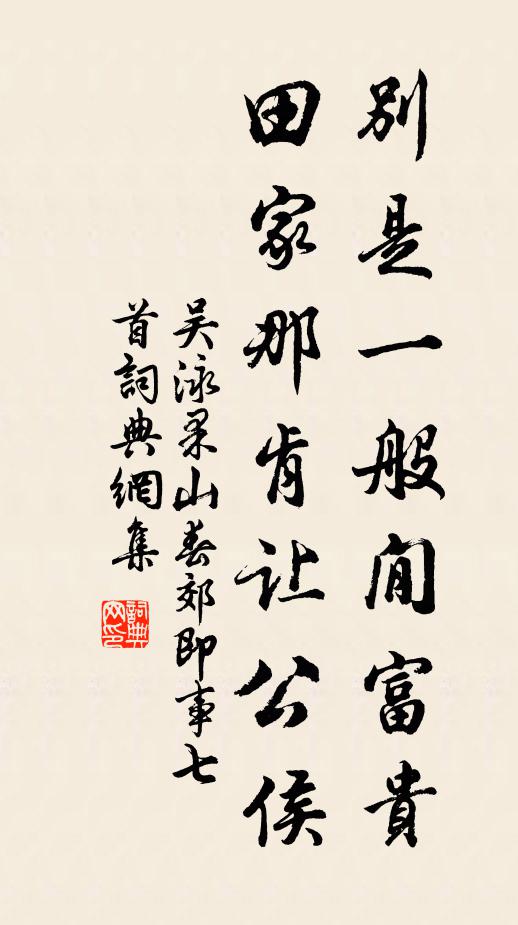 别是一般閒富貴
田家那肯让公侯
吴泳果山春郊即事七
首詞典網集
詞典
网印